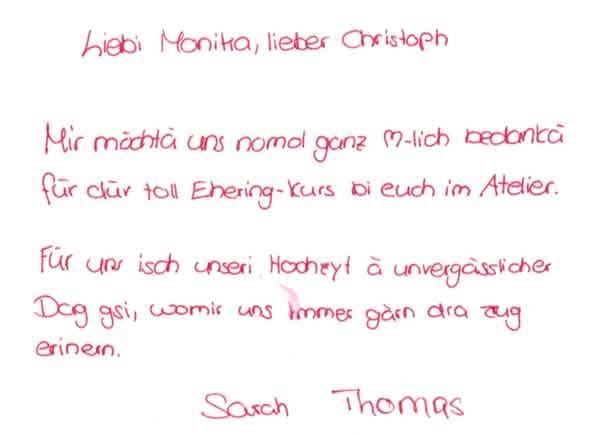 Liebi Monika, lieber Christoph
Mir möchtä uns nomol ganz ♡-lich bedankä
für dür toll Ehering-Kurs bi euch im Atelier.
Für uns isch unseri Hochzyt ä unvergässlicher
Dag gsi, womir uns immer gärn dra zug
erinern.
Sarah Thomas